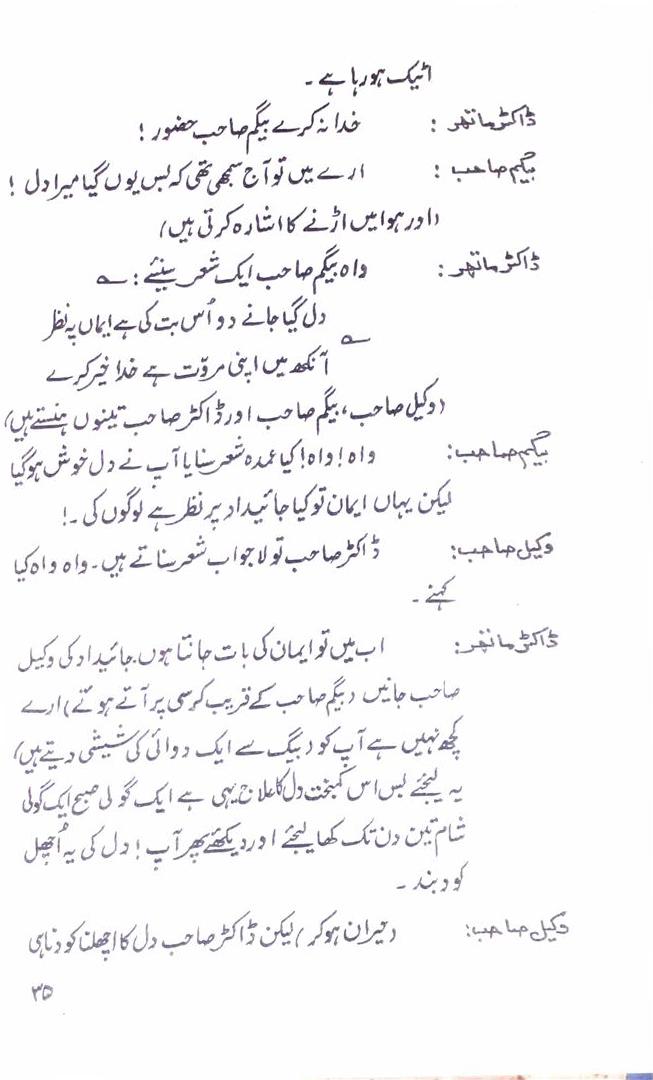 اٹیک ہو رہا ہے ۔
ڈاکٹر ماتھر : خدا نہ کرے بیگم صاحب حضور !
بیگم صاحب : ارے میں تو آج سمجھی تھی کہ بس یوں گیا میرا دل !
(اور ہوا میں اڑنے کا اشارہ کرتی ہیں)
ڈاکٹر ماتھر : واہ بیگم صاحب ایک شعر سنیئے : ؎
دل گیا جانے دو اُس بت کی ہے ایماں پہ نظر
؎
آنکھ میں اپنی مروّت ہے خدا خیر کرے
(وکیل صاحب، بیگم صاحب اور ڈاکٹر صاحب تینوں ہنستے ہیں)
بیگم صاحب: واہ ! واہ! کیا عمدہ شعر سنایا آپ نے دل خوش ہو گیا
لیکن یہاں ایمان تو کیا جائیداد پر نظر ہے لوگوں کی ۔!
وکیل صاحب: ڈاکٹر صاحب تو لاجواب شعر سناتے ہیں ۔ واہ واہ کیا
کہنے ۔
ڈاکٹر ماتھر: اب میں تو ایمان کی بات جانتا ہوں۔ جائیداد کی وکیل
صاحب جانیں (بیگم صاحب کے قریب کرسی پر آتے ہوئے) ارے
کچھ نہیں ہے آپ کو (بیگ سے ایک دوائی کی شیشی دیتے ہیں)
یہ لیجئے بس اس کمبخت دل کا علاج یہی ہے ایک گولی صبح ایک گولی
شام تین دن تک کھا لیجئے اور دیکھئے پھر آپ ! دل کی یہ اُچھل
کود بند ۔
وکیل صاحب: (حیران ہو کر) لیکن ڈاکٹر صاحب دل کا اچھلنا کودنا ہی
۳۵